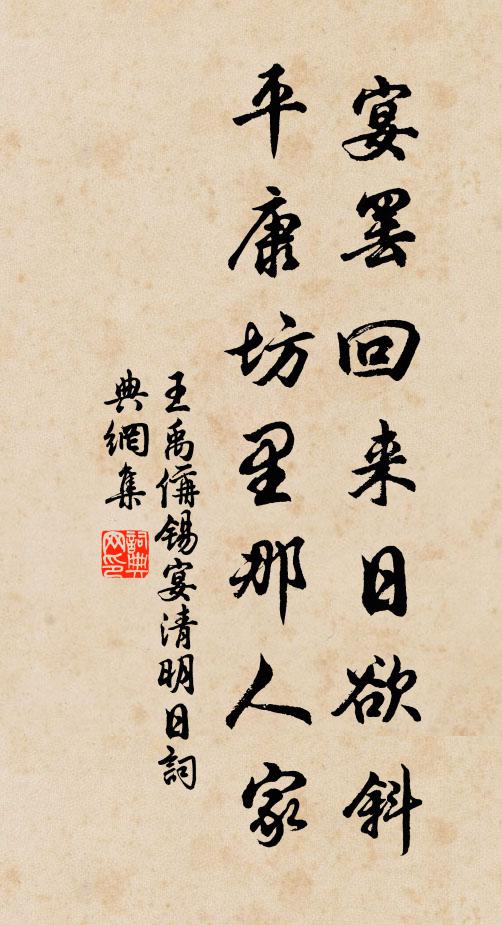 宴罢回来日欲斜
平康坊里那人家
王禹偁锡宴清明日詞
典網集
詞典网印